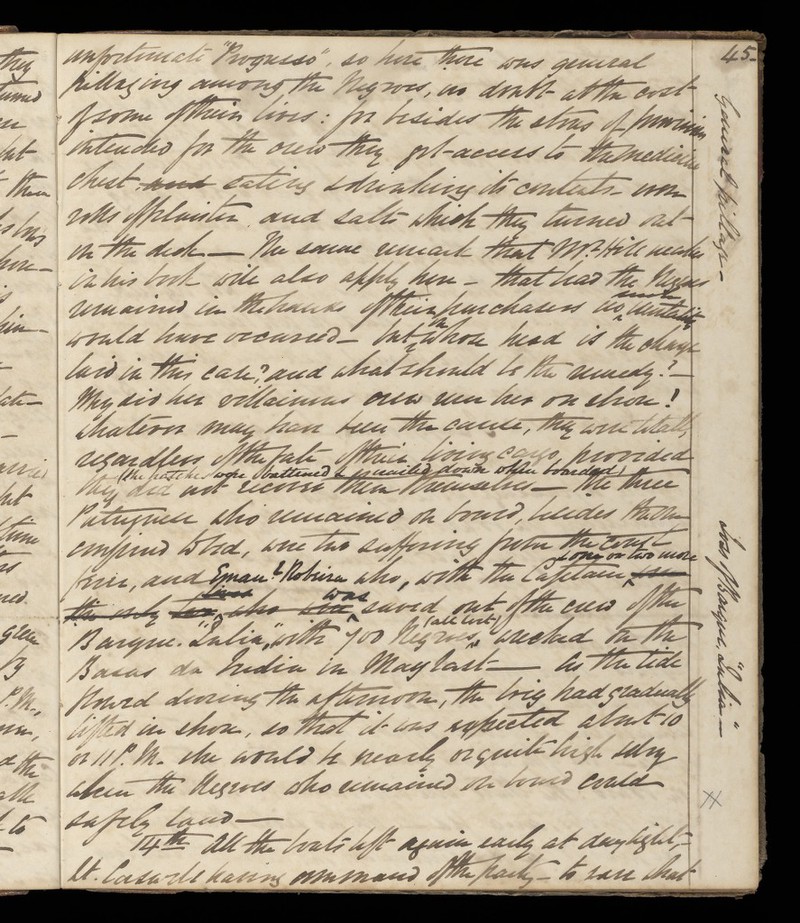 45.
unfortunate "Progresso", so here there was general
pillaging among the Negroes, no doubt at the cost
of some of their lives: for besides the stores of provisions
intended for the crew they got access to the medicine
chest and eating & drinking its contents even
rolls of plaister and salts which they turned out
on the deck — The same remark that Mr. Hill makes
in his book will also apply here — that had the Negroes
remained in the hands of their purchasers no such mortality
would have occurred — but on whose head is the charge
laid in this case? and what should be the remedy? —
Why did her villainous crew run her on shore!
Whatever may have been the cause, they were totally
regardless of the fate of their living cargo, provided
(the hatches were battened & nailed down when boarded)
they did not recover them themselves — The three
Portuguese who remained on board, besides the one
confined to bed, were two suffering from the coast
fever, and Emanl. Robeira who, with the Captain & one or two more
was saved out of the crew of the
Barque "Julia," with 700 Negroes, (all lost) wrecked on the
Basas da India in May last — As the tide
flowed during the afternoon, the brig had gradually
lifted in shore, so that it was expected about 10
or 11 P.M. she would be nearly or quite high & dry
when the Negroes who remained on board could
safely land —
14th All the boats left again early at daylight,
Lt. having command of the party — to save what
General pillage —
Loss of Barque, "Julia" —